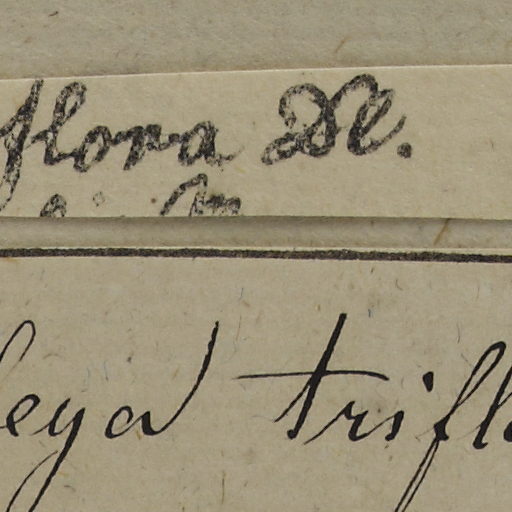 flora Dl.
leya trifl